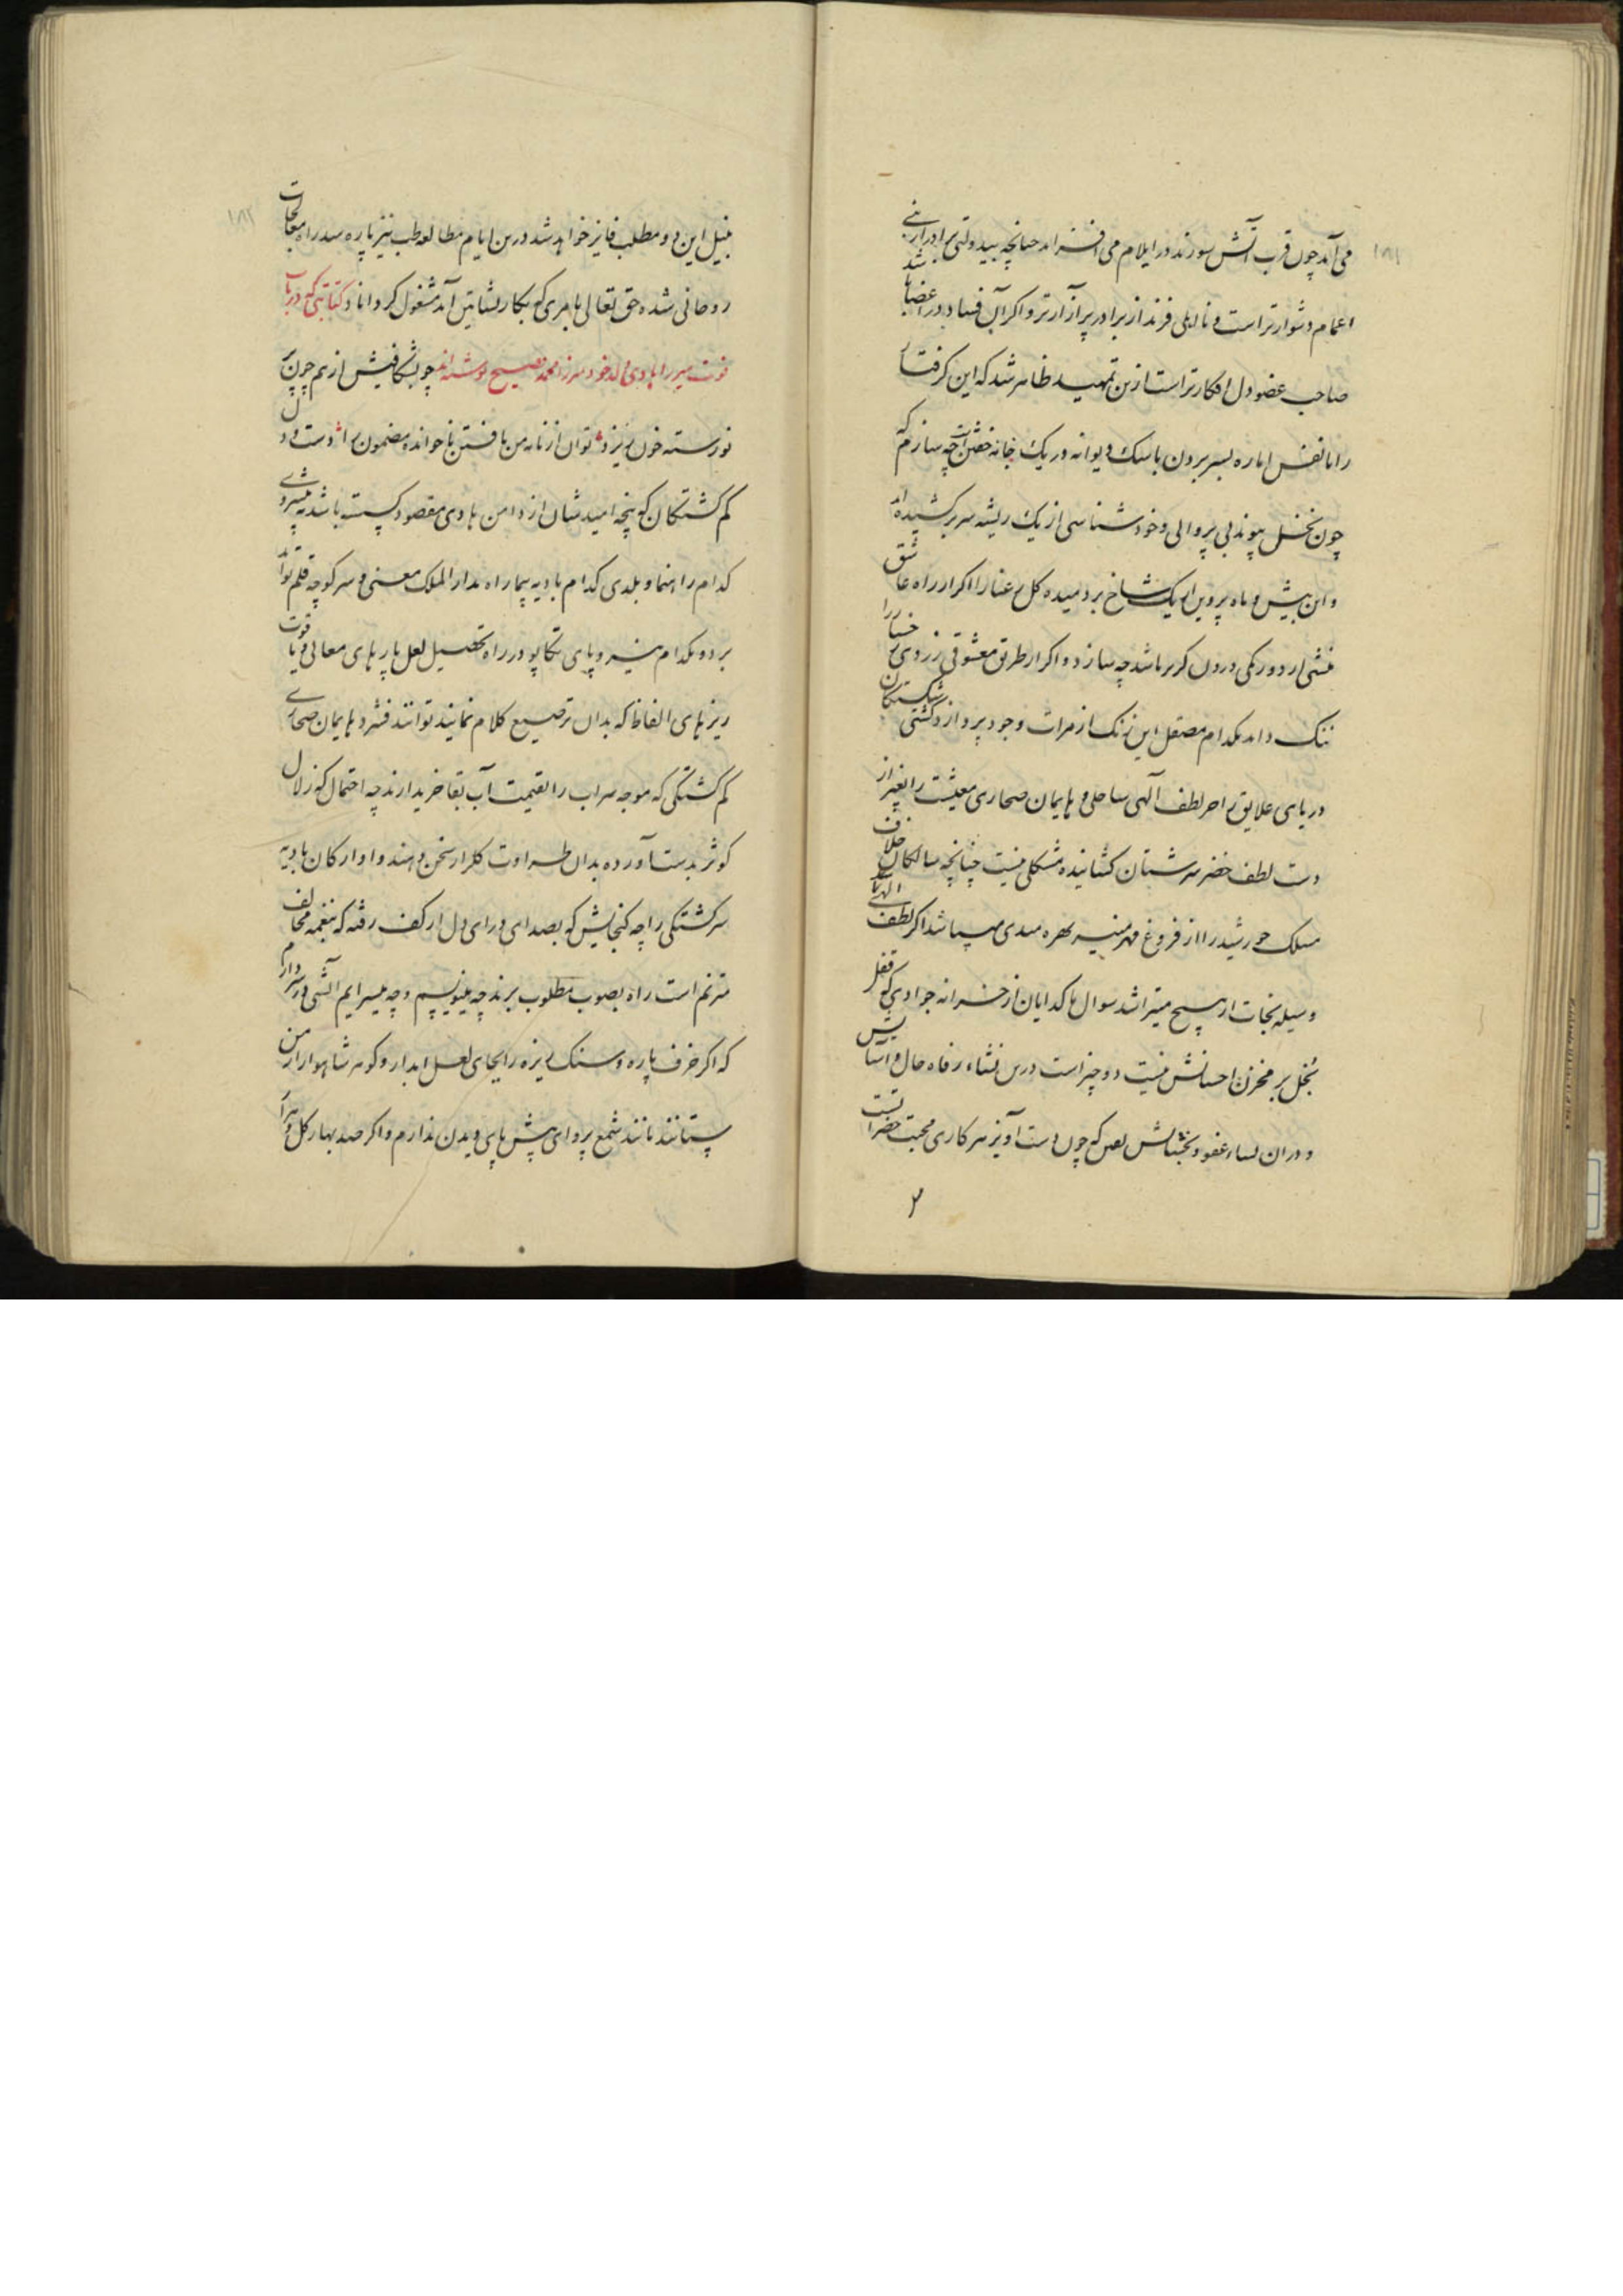 ۱۸۱
می آید چون قرب آتش سوزنده در ایلام می افزاید چنانچه بیدولتی برادر از بنی
اعمام دشوارتر است و نااهلی فرزند از برادر پر آزارتر و اگر آن فساد در اعضا باشد
صاحب عضو دل افکارتر است ازین تمهید ظاهر شد که این گرفتار
را با نفس اماره بسر بردن با سک دیوانه در یک خانه خفتن است چه سازم که
چون نخل پیوند بی پروایی و خودشناسی از یک ریشه سر بر کشیده اند
و این بیش و ماه پروین از یک شاخ بر دمیده کل رعنا را اکر از راه عاشق
منشی از دو رنکی درون کریز باشد چه سازد و اکر از طریق معشوقی ز زردی رخسار را
ننک داند بکدام مصقل این زنک از مرات وجود پردازد کشتی شکستکان
دریای علایق را جز لطف آلهی ساحلی و پایمان صحاری معیشت را بغیر از
دست لطف خضر سرشتان کشاننده مشکلی نیست چنانچه سالکان خلاف
مسلک خورشید را از فروغ مهر منیر بهره مندی میباشد اکر لطف الهی
وسیله نجات از هیچ میتراشد سوال ما کدایان از خزانه جوادی که قفل
بخل بر مخزن احسانش نیست دو چیز است درین نشاء رفاه حال و آسایش
و دران نساء عفو و بخشایش یقین که چون دست آویز سرکاری محبت حضرات است
۱۸۲
بنیل این دو مطلب فایز خواهد شد درین ایام مطالعه طب نیز پاره سد راه معالجات
روحانی شده حق تعالی بامری که بکار نشاتین آید مشغول کرداناد کتابتی که در باب
فوت میرزا هادی ولد خود میرزا محمد فصیح نوشته اند چو بشکافیش از هم چون
نورسته خون ریزد توان از نامه من یافتن ناخوانده مضمون را دست و دل
کم کشتکان که پنجه امید شان از دامن هادی مقصود کسسته باشد به پیشروی
کدام راهنما و بلدی کدام بادیه پیما راه بدار الملک معنی و سر کوچه قلم تواند
برد و بکدام نیرو پای تکاپو در راه تحصیل لعل پارهای معالی و یاقوت
ریزهای الفاظ که بدان ترصیع کلام نمایند توانند فشرد پایمان صحاری
کم کشتکی که موجه سراب را بقیمت آب بقا خریدارند چه احتمال که زلال
کوثر بدست آورده بدان طراوت کلزار سخن دهند و اوارکان بادیه
سرکشتکی را چه کنجایش که بصدای درای دل از کف رفته که بنغمه مخالف
مترنم است راه بصوب مطلوب برند چه مینویسم و چه میسرایم آتشی در سر دارم
که اکر خزف پاره و سنک ریزه را بجای لعل ابدار و کوهر شاهوار از من
ستانند مانند شمع پروای پیش پای دیدن ندارم و اکر صد بهار کل و